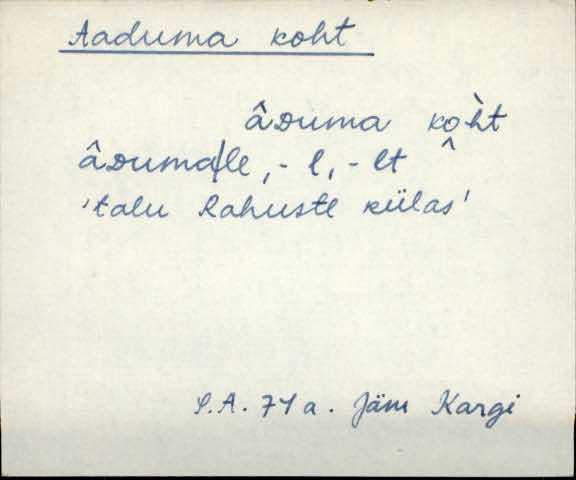 Aaduma koht
âᴅuma ko̭h̀t
âᴅuma|le, -l, -lt
'talu Rahuste külas'
S.A. 71 a. Jäm Kargi